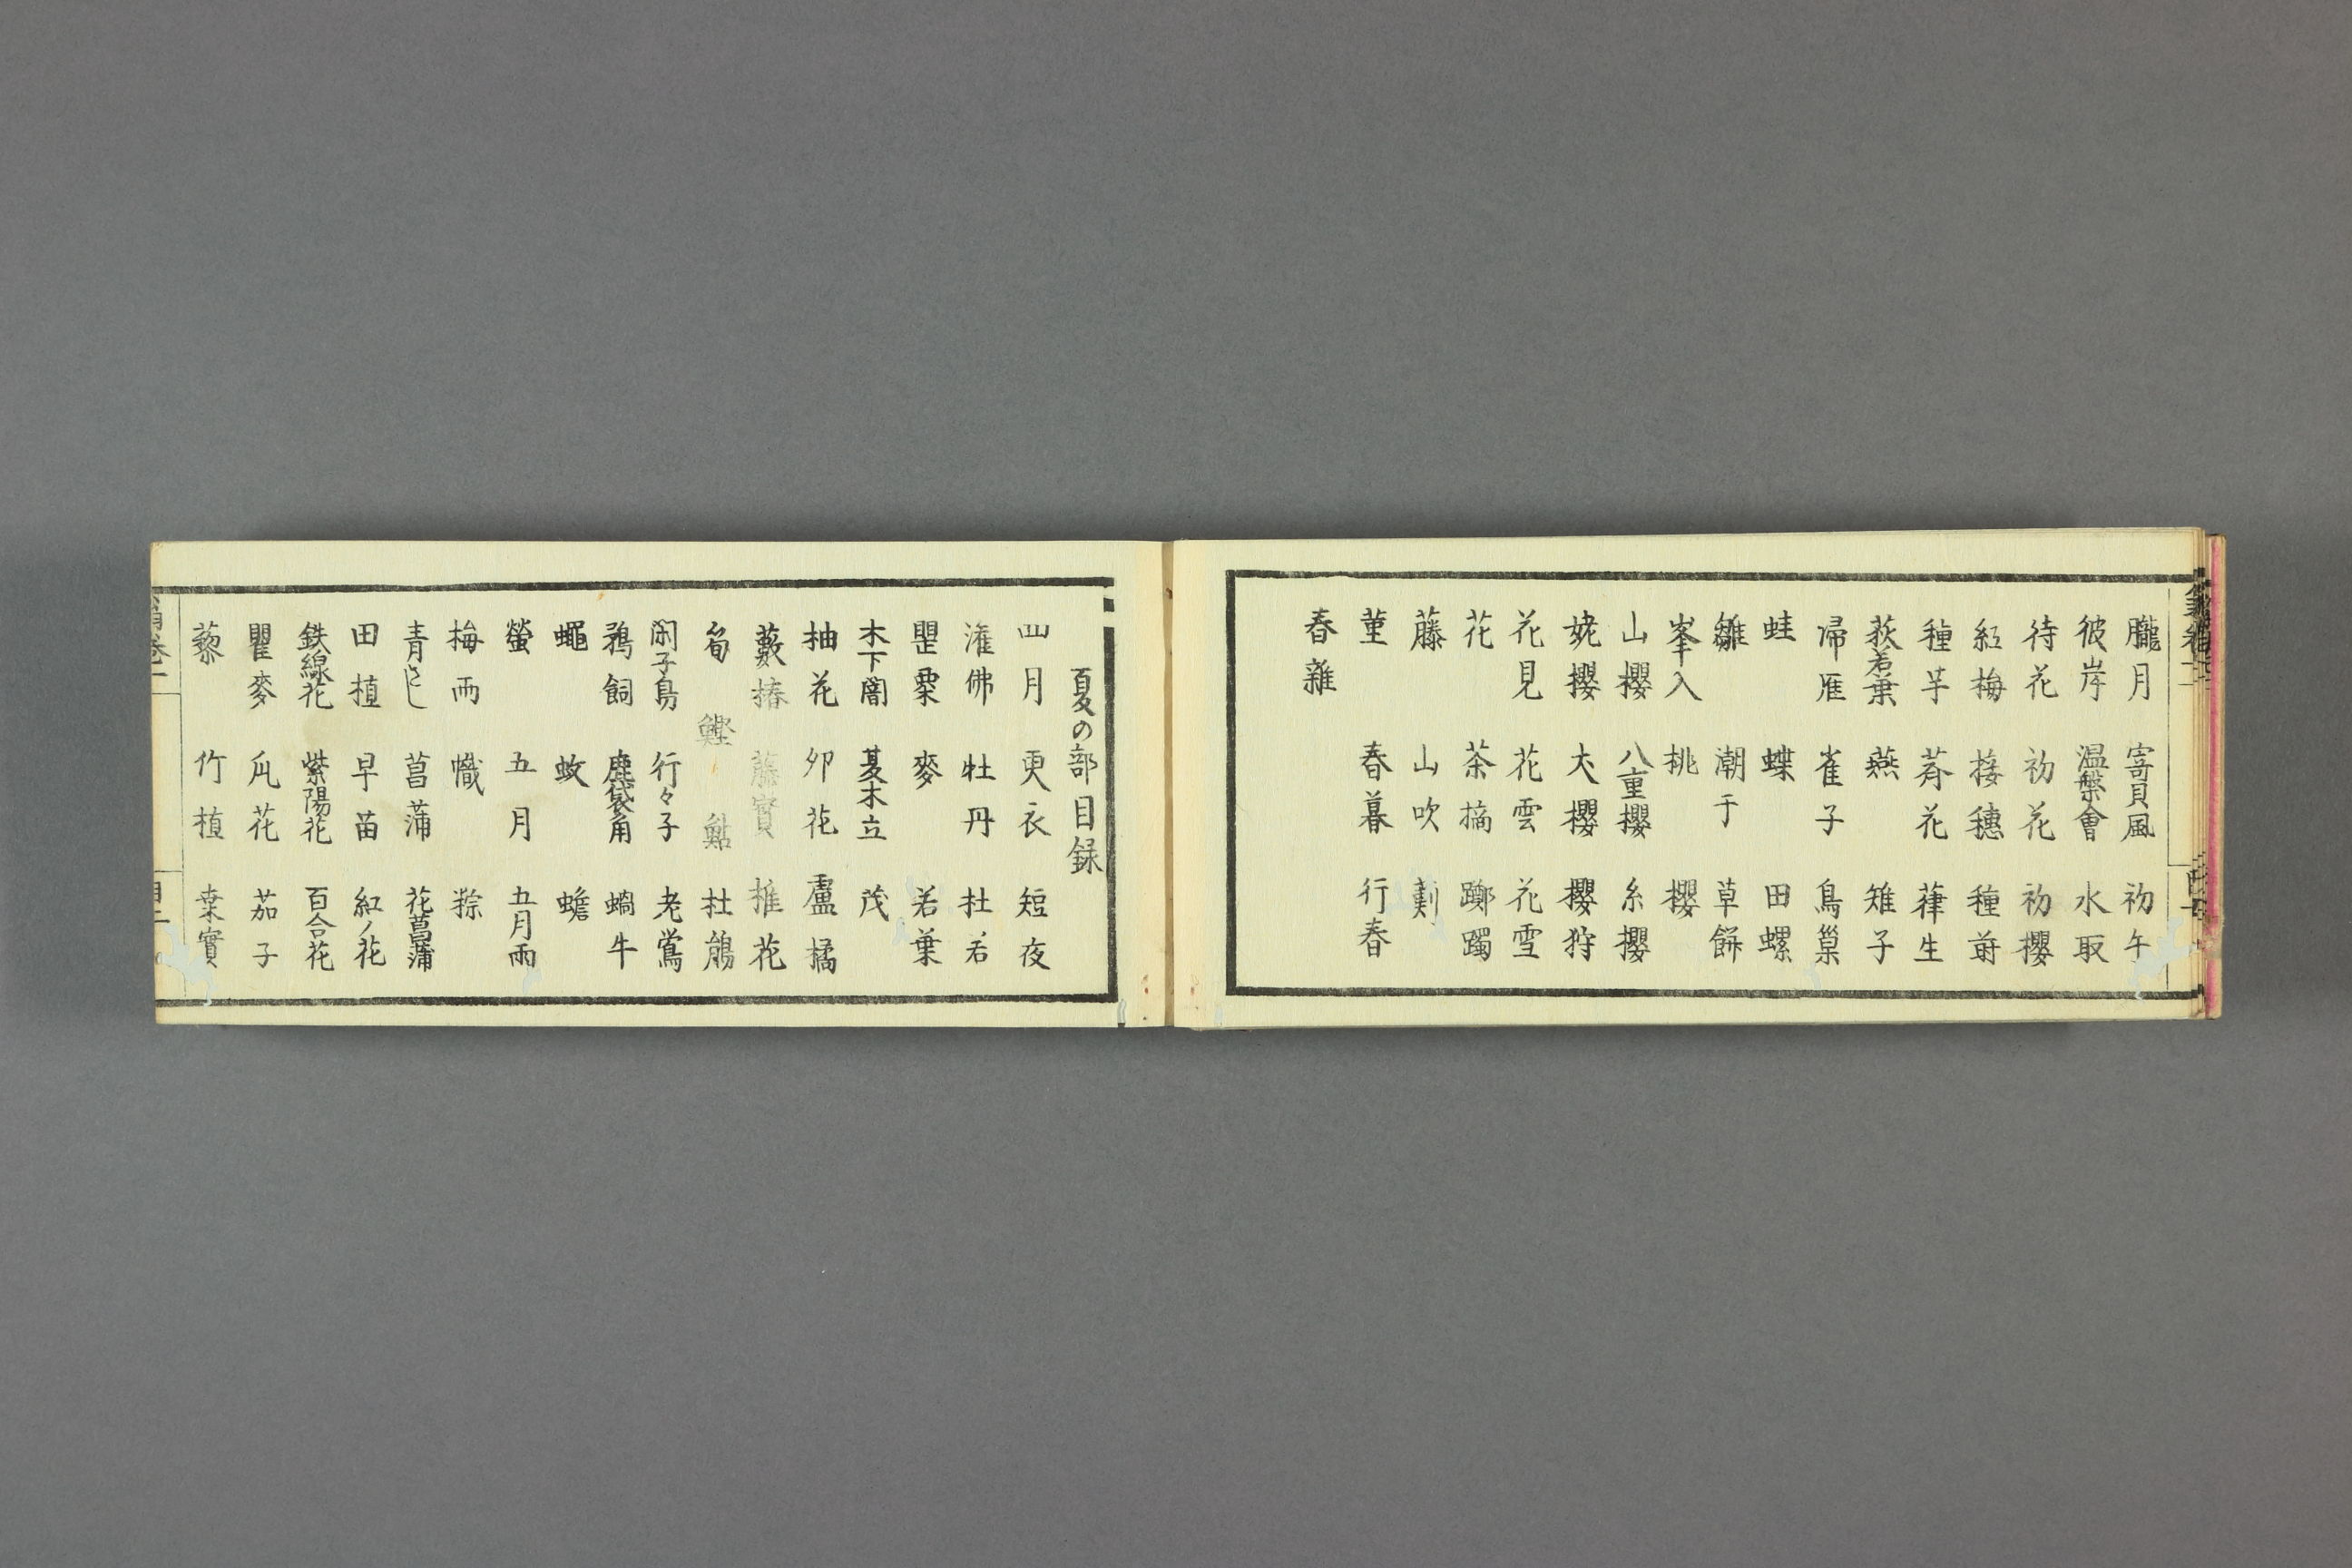 朧月 寄貝風 初午
彼岸 温槃會 水取
待花 初花 初櫻
紅梅 接穗 種蒔
種芋 芥花 葎生
荻若葉 燕 雉子
帰雁 雀子 鳥巣
蛙 蝶 田螺
雛 潮干 草餅
峯入 桃 櫻
山櫻 八重櫻 糸櫻
姥櫻 犬櫻 櫻狩
花見 花雲 花雪
花 茶摘 躑躅
藤 山吹
菫 春暮 行春
春雜
夏の部目録
四月 更衣 短夜
灌佛 牡丹 杜若
罌粟 麥 若葉
木下闇 夏木立 茂
柚花 卯花 盧橘
藪椿 藤實 椎花
筍 鰹 鮎 杜鵑
閑子鳥 行々子 老鴬
鵜飼 鹿袋角 蝸牛
蠅 蚊 蟾
螢 五月 五月雨
梅雨 幟 粽
青さし 菖蒲 花菖蒲
田植 早苗 紅ノ花
鉄線花 紫陽花 百合花
瞿麥 瓜花 茄子
藜 竹植 桑實